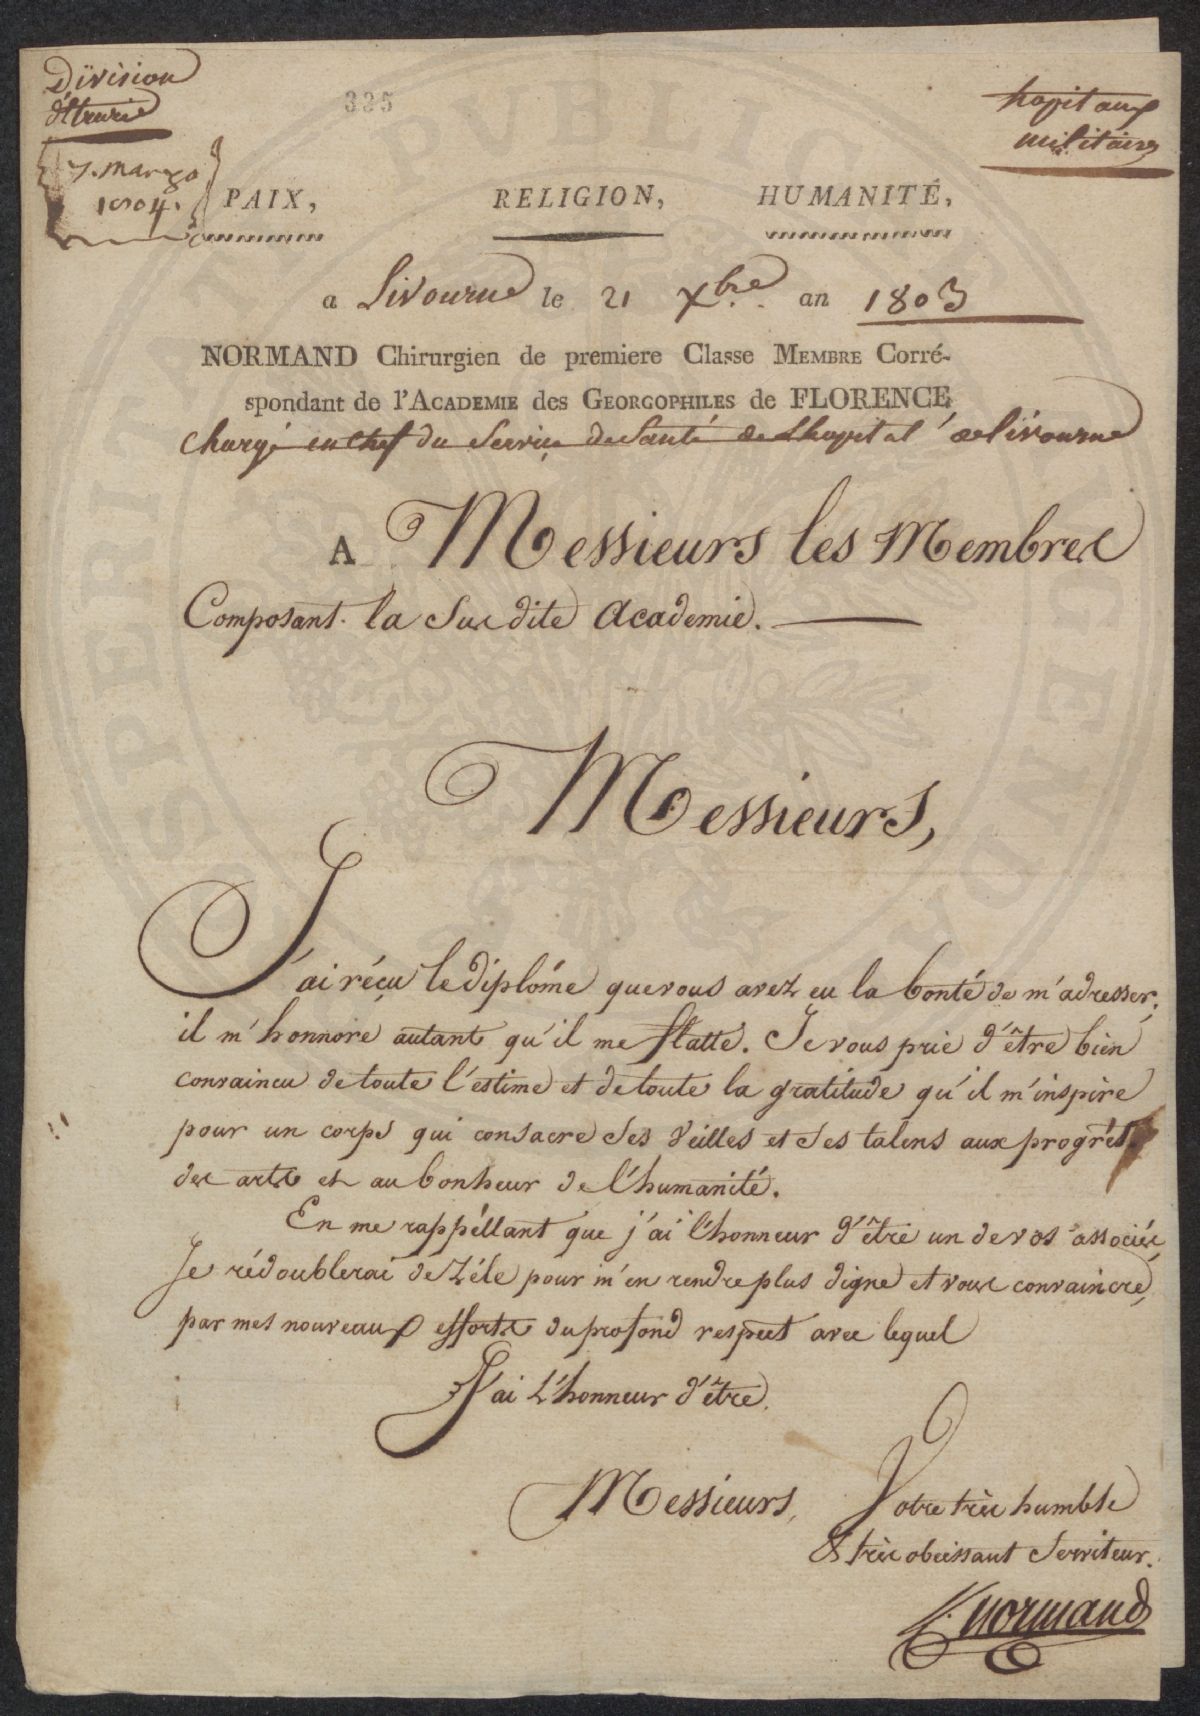 Division
d'Etrurie
335
hopitaux
militaires
7. marzo
1804.
PAIX, RELIGION, HUMANITÉ,
a Livourne le 21 Xbre. an 1803
NORMAND Chirurgien de premiere Classe MEMBRE Corré-
spondant de l'ACADEMIE des GEORGOPHILES de FLORENCE
Chargé en chef du Service de Santé de Lhopital de livourne
A Messieurs les Membres
Composant la Susdite Academie.
Messieurs,
J'ai réçu le diplôme que vous avez eu la bonté de m'adresser;
il m'honnore autant qu'il me flatte. Je vous prie d'être bien
convaincu de toute l'estime et de toute la gratitude qu'il m'inspire
pour un corps qui consacre ses veilles et ses talens aux progrès
des arts et au bonheur de l'humanité.
En me rappéllant que j'ai l'honneur d'être un de vos associés,
Je rédoublerai de zéle pour m'en rendre plus digne et vous convaincre,
par mes nouveaux efforts du profond respect avec lequel
J'ai L'honneur d'être
Messieurs, Votre très humble
& très obeissant Serviteur.
Normand